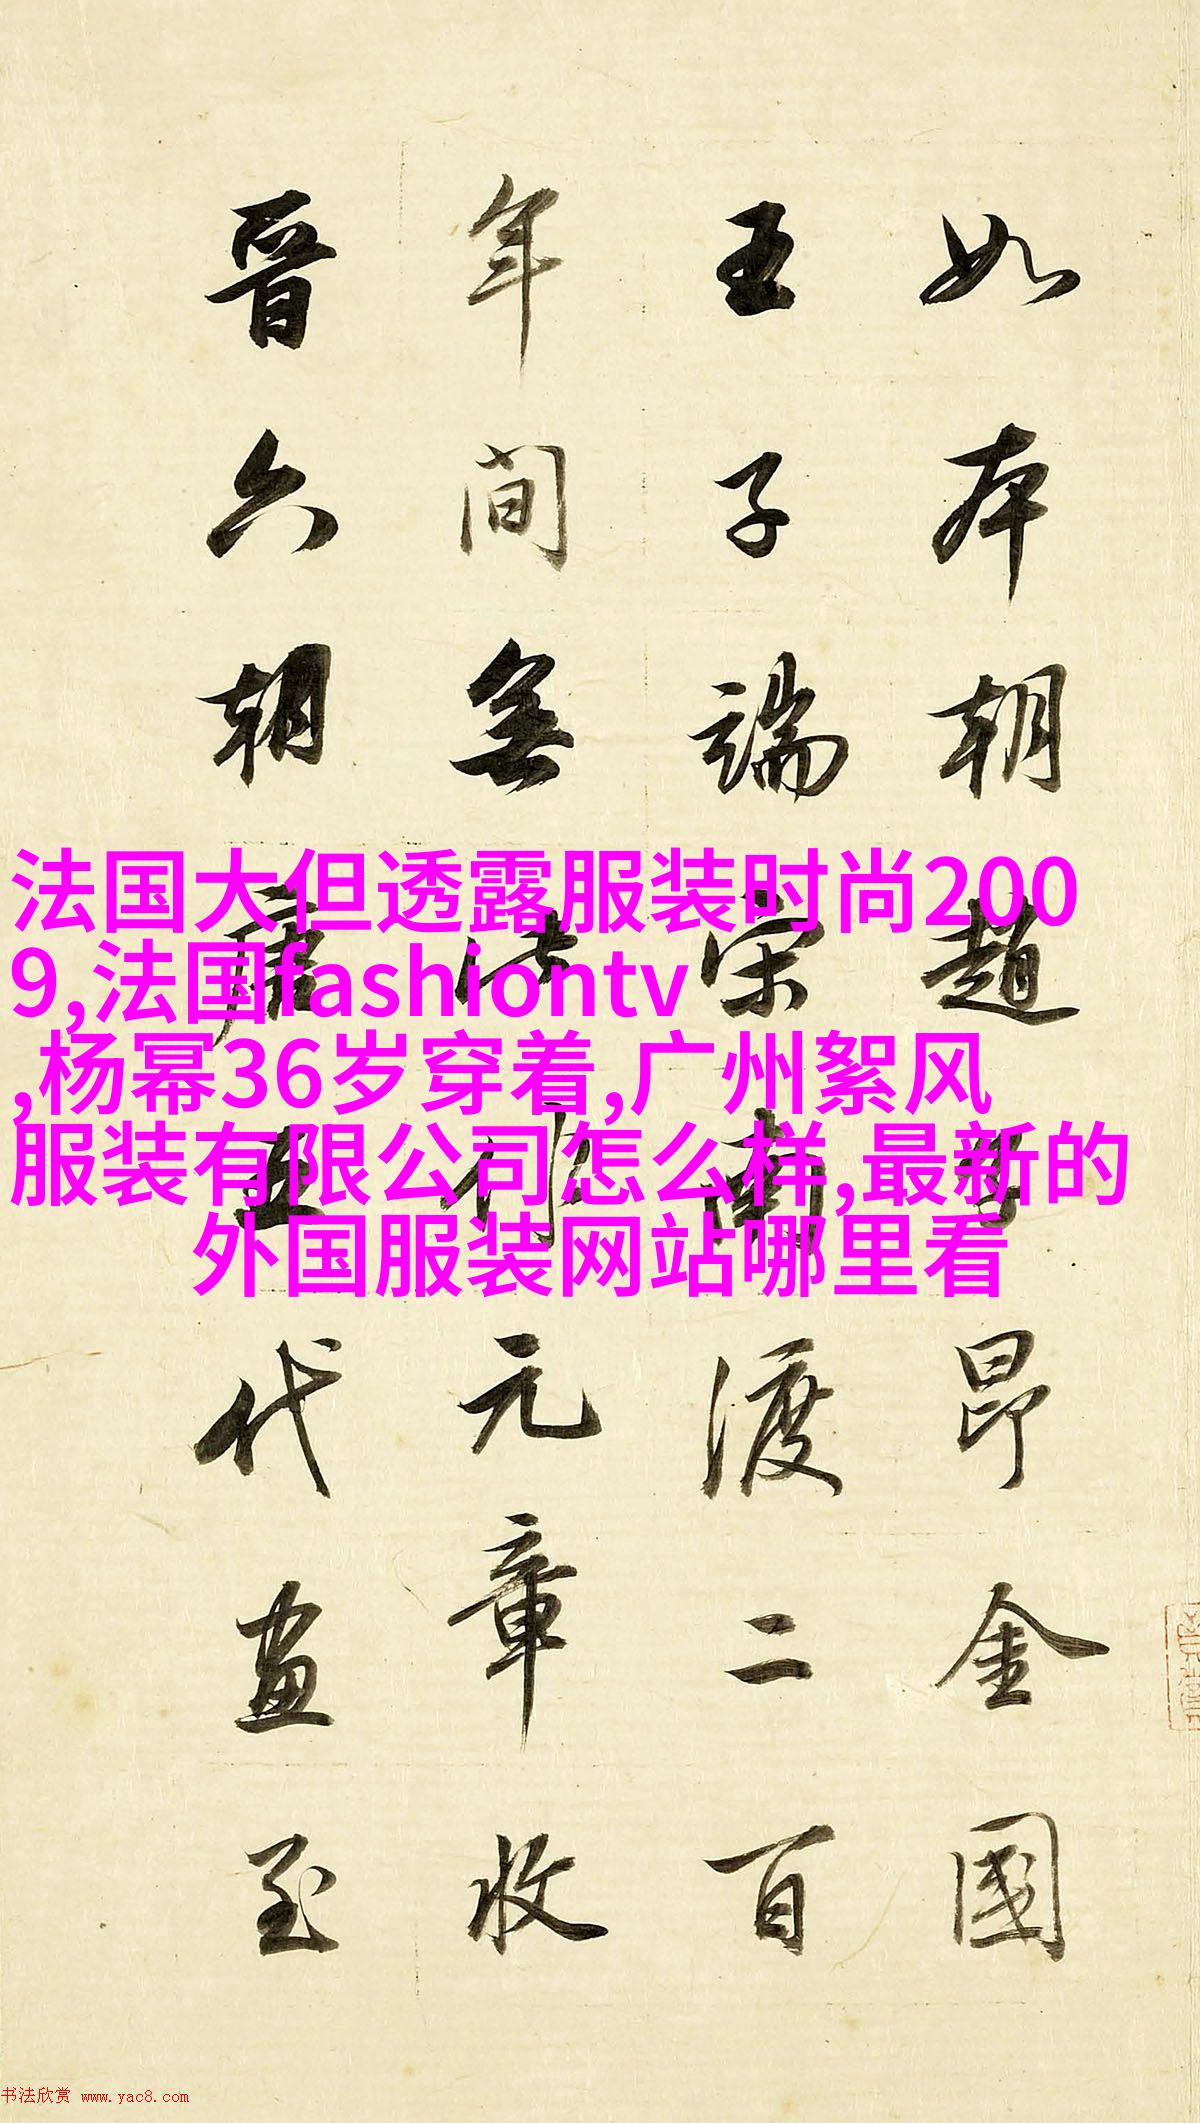 如本朝趙子昂金國
王子端宋南渡二百
年間無此作元章收
晉六朝唐五代畫至
法国大但透露服装时尚200
9,法国fashiontv
,杨幂36岁穿着,广州絮风
服装有限公司怎么样,最新的
外国服装网站哪里看
书法欣赏 www.yac8.com